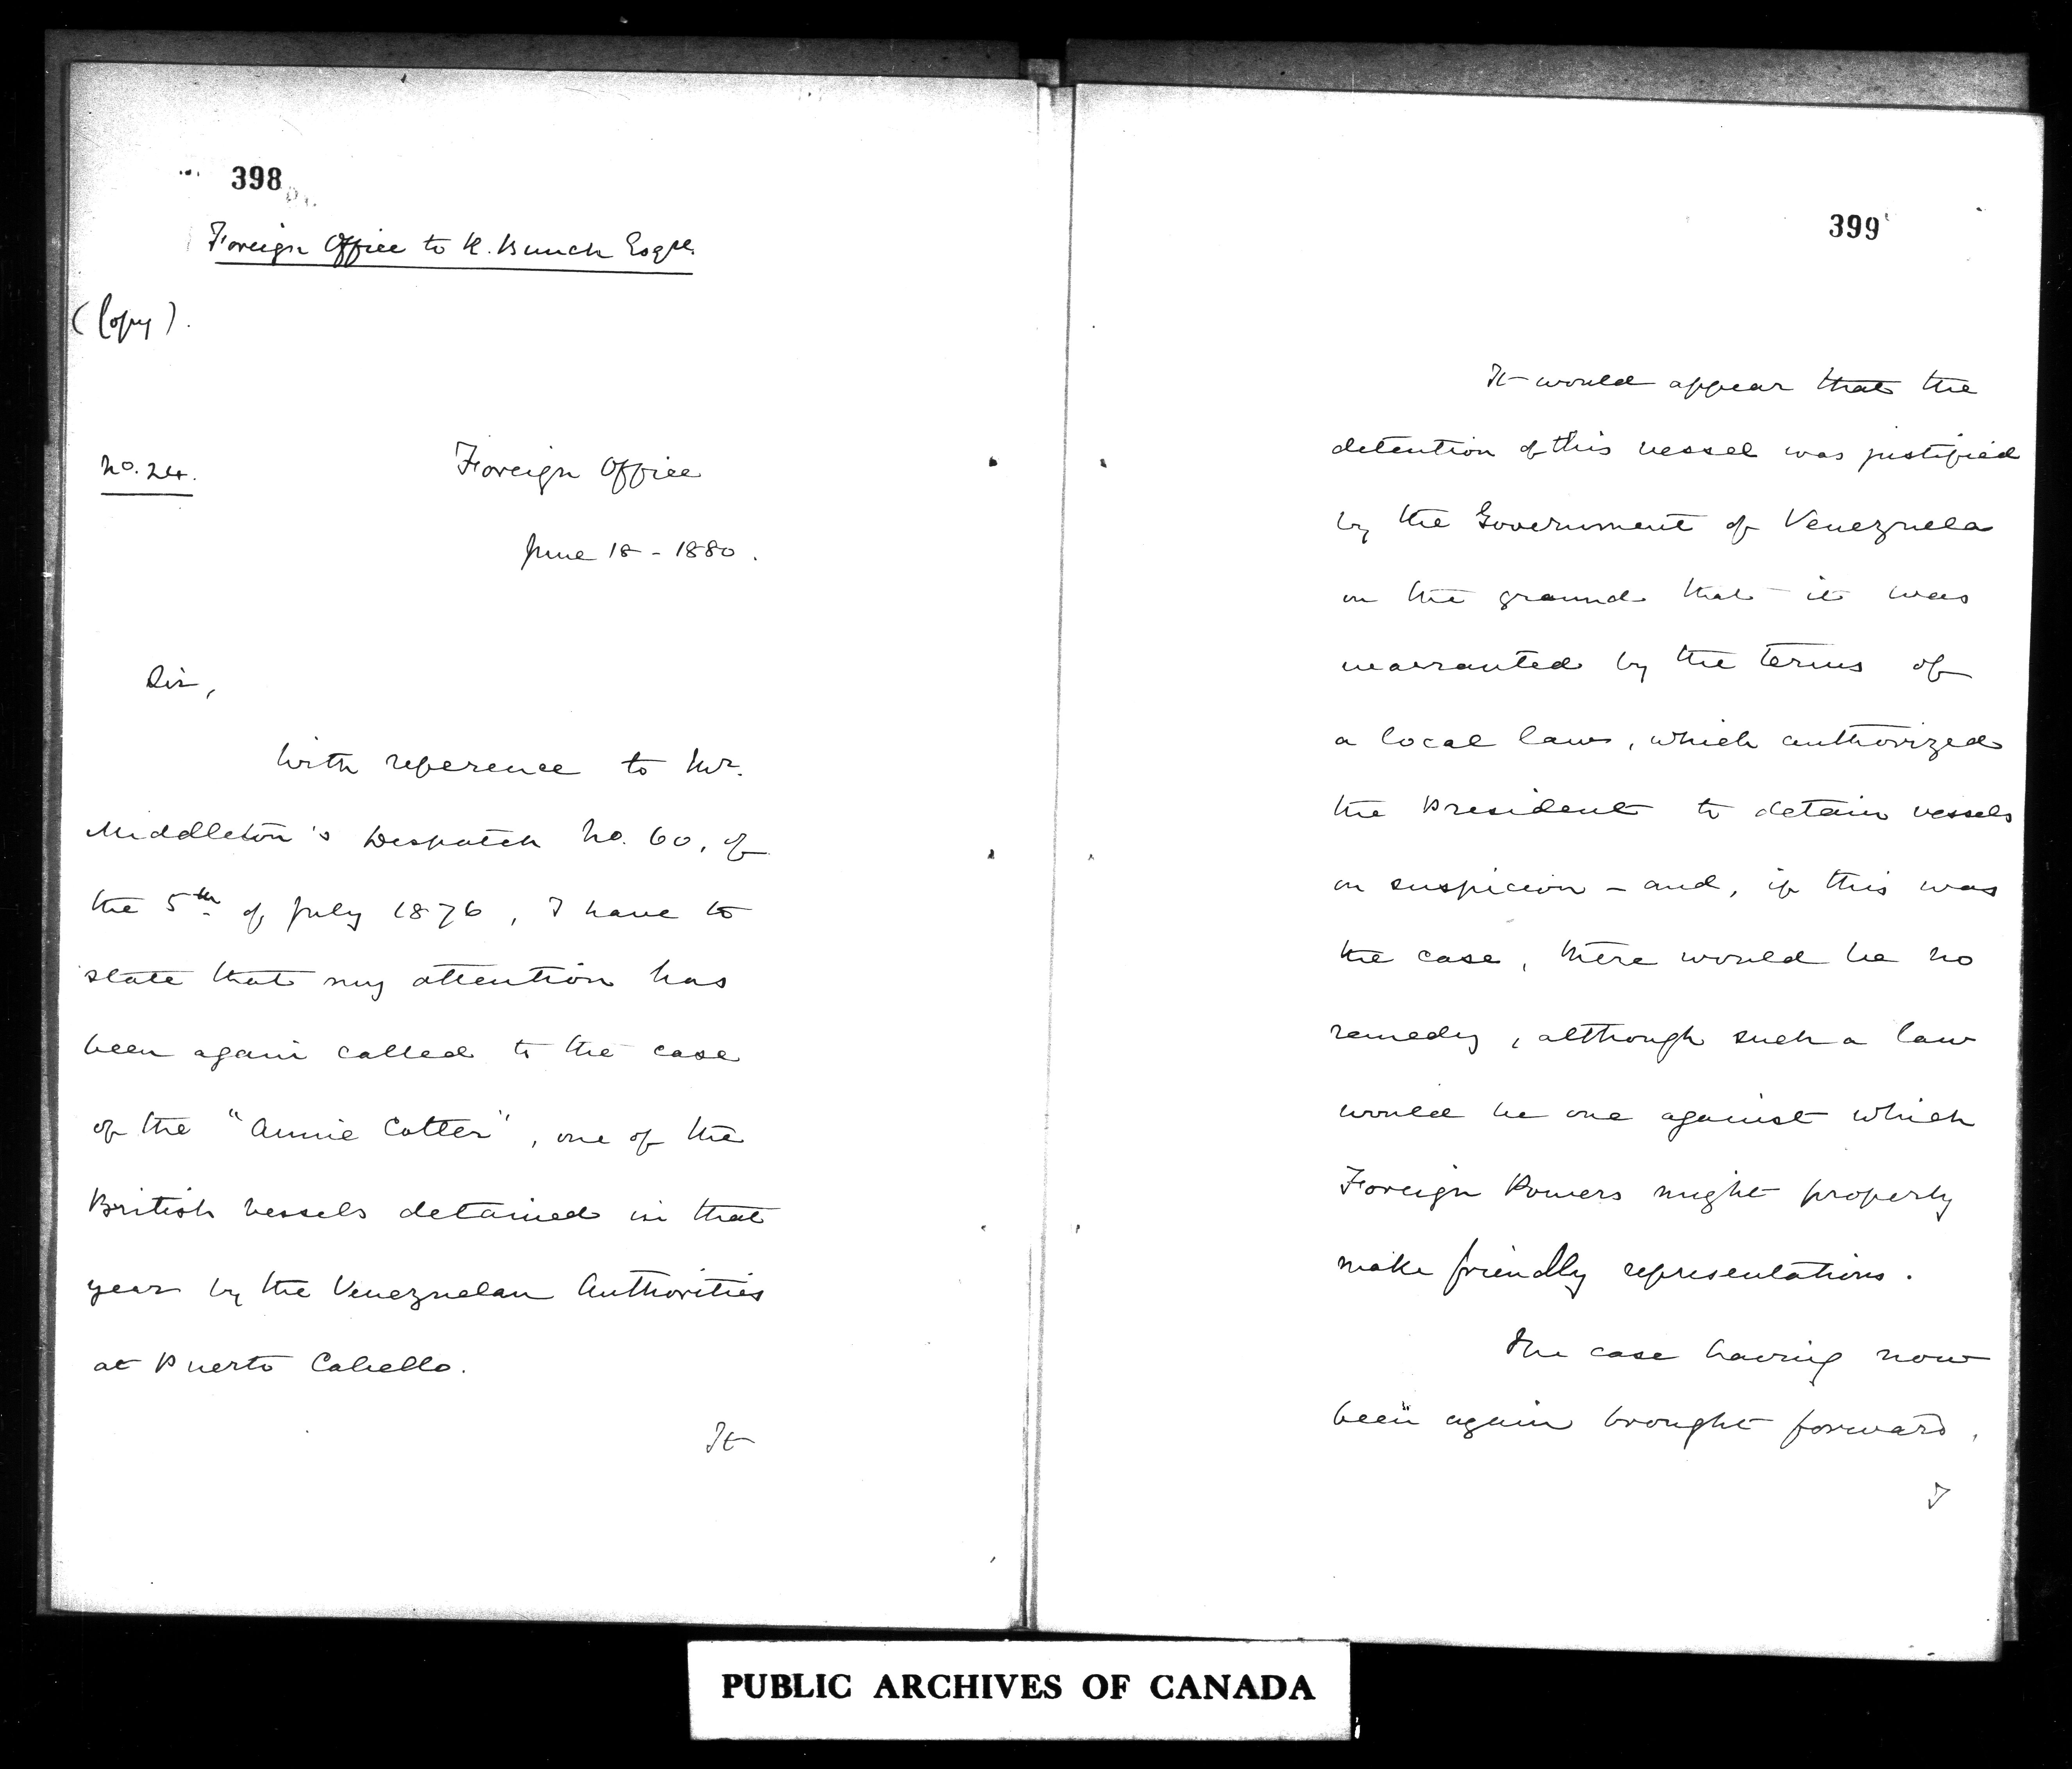 398
Foreign Office to R. Bunch Esqre.
(Copy).
No. 24.
Foreign Office
June 18 - 1880.
Sir,
With reference to Mr.
Middleton's Despatch No. 60, of
the 5th of July 1876, I have to
state that my attention has
been again called to the case
of the "Annie Cotter", one of the
British vessels detained in that
year by the Venezuelan Authorities
at Puerto Cabello.
It
399
It would appear that the
detention of this vessel was justified
by the Government of Venezuela
on the ground that it was
warranted by the terms of
a local law, which authorized
the President to detain vessels
on suspicion - and, if this was
the case, there would be no
remedy, although such a law
would be one against which
Foreign Powers might properly
make friendly representations.
The case having now
been again brought forward,
I
PUBLIC ARCHIVES OF CANADA